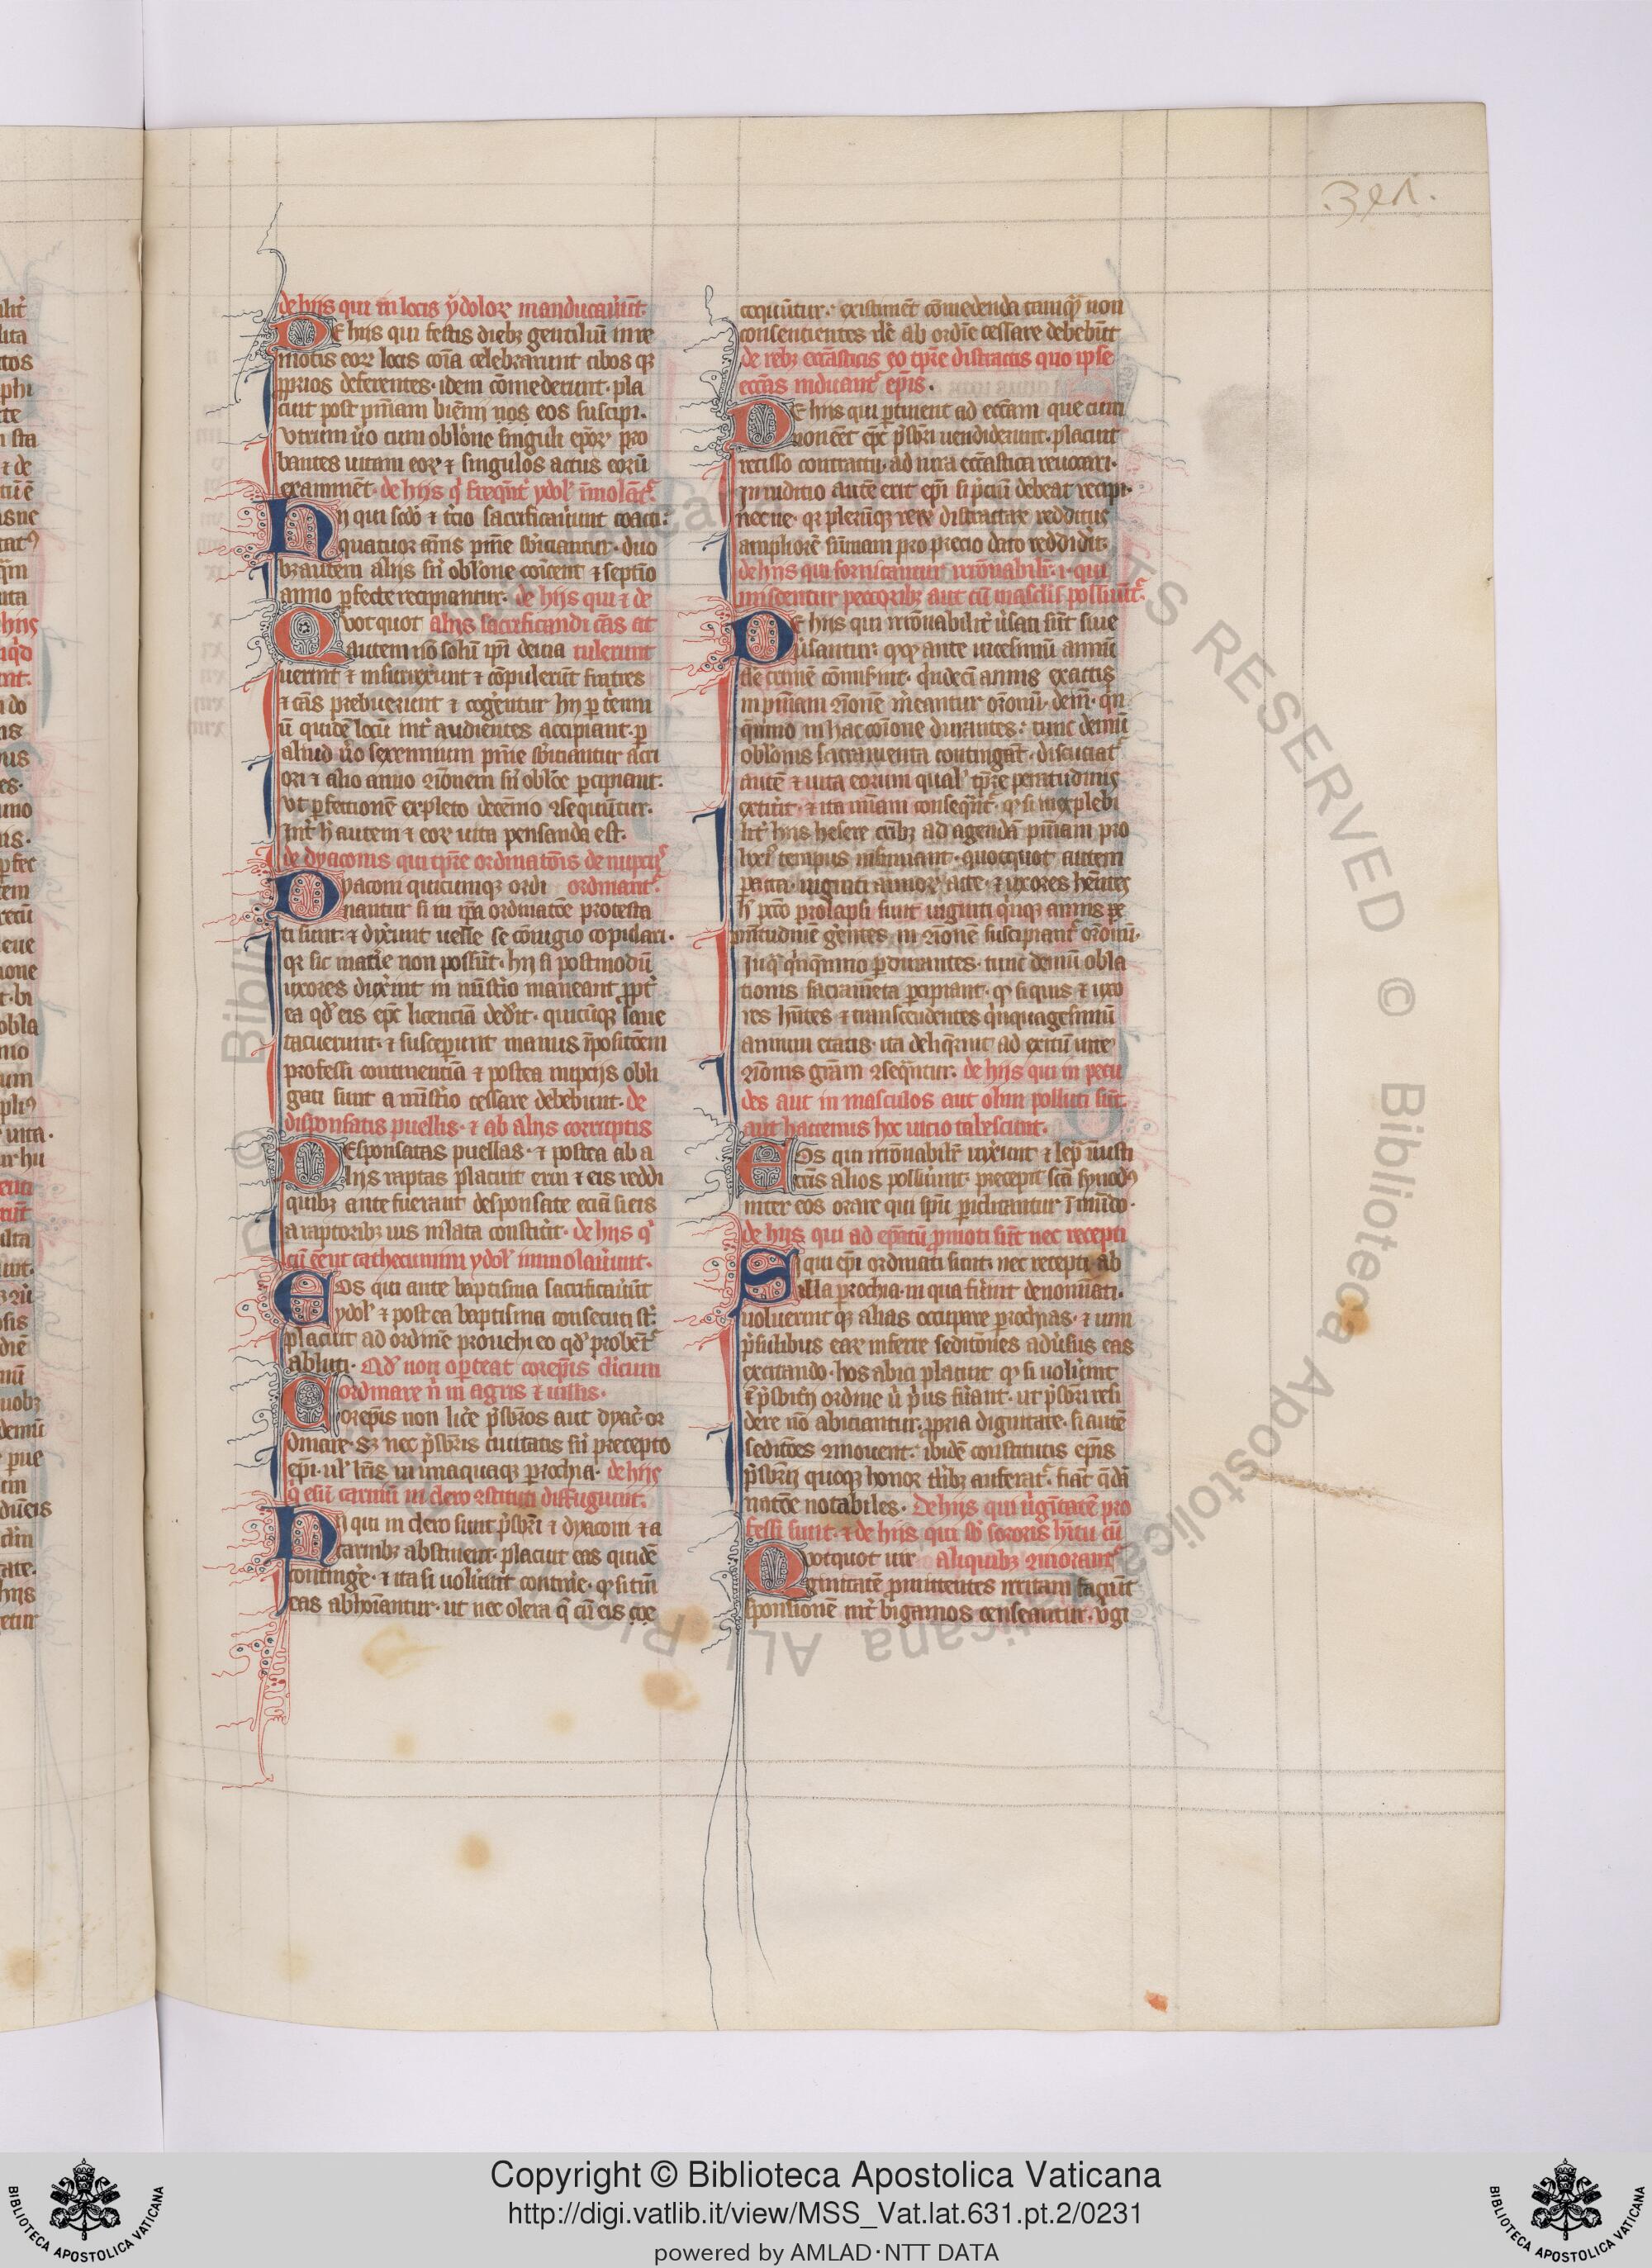 de hijs qui in locis ydolor̄ manducaver̄t.
De hijs qui festis dieb; gentiliū in re
motis eor̄ locis cōia celebrarunt cibos q;
pprios deferentes· idem cōmederunt· pla
cuit post pn̄iam bienni nos eos suscipi·
utrum ū̓o cum obl̓one singuli ep̄or̄ pro
bantes uitam eor̄ ⁊ singulos actus eorū
examinēt· de hijs
Hij qui scd̓o ⁊ t̓cio sacrificauerunt coacti:
quatuor annis pn̄ie sb̓iciantur· duo
b; autem alijs sn̄ obl̓one cōicent ⁊ septīo
anno p̄fecte recipiantur· de hijs qui ⁊ de
Quotquot alijs sacrificandi cās at
autem nō solū ip̄i deuia tulerunt
uerint ⁊ insurrexerunt ⁊ cōpulerūt fratres
⁊ cās prebuerunt ⁊ cogerentur hij p̄ trienni
ū quidē locū int̓ audientes accipiant· p̄
aliud ū̓o sexennium pn̄ie sb̓iciantur acri
ori ⁊ alio anno ꝯionem sn̄ obl̓oe p̄cipiant·
ut p̄fectionē expleto decennio ꝯsequātur·
Int̓ h̓ autem ⁊ eor̄ uita pensanda est·
de dyaconis qui tp̄re ordinatōis de nupciis
Dyaconi quicumq; ordi ordinant̓·
nantur si in ip̄a ordinatōe protesta
ti sunt· ⁊ dix̄unt uelle se cōiugio copulari·
qr sic manē non possūt· hij si postmodū
uxores dux̄int in mīst̓io maneant ꝓpt̓
ea qd̓ eis ep̄c licenciā ded̓it· quicūq; sane
tacuerunt· ⁊ susceperunt manus īpositōem
professi continentiā ⁊ postea nupcijs obli
gati sunt a mīst̓io cessare debebunt· de
disponsatis puellis· ⁊ ab alijs corruptis
Desponsatas puellas· ⁊ postea ab a
lijs raptas placuit erui ⁊ eis reddi
quib; ante fuerant desponsate eciā si eis
a raptorib; uis illata constit̓it· de hijs q̓
cū eēnt cathecumini ydol̓ immolauer̄unt·
Eos qui ante baptisma sacrificauerūt
ydol̓ ⁊ postea baptisma consecuti st̄:
placuit ad ordinē prouehi eo qd̓ probēt̓
abluti· Qd̓ non oporteat corep̄is dicum
ordinare n̄ in agris ⁊ uillis·
Corep̄is non lic̓e pr̄sb̓ros aut dyac̓· or
dinare· S; nec pr̄sb̓ris ciuitatis sn̄ precepto
ep̄i· ul̓ lr̄is in unaquaq; p̄rochia· de hijs
q̓ esū carniū in clero ꝯstituti diffugiunt·
Hij qui in clero sunt pr̄sb̓ri ⁊ dyaconi ⁊ a
carnib; abstinent· placuit eas quidē
contingere· ⁊ ita si uoluerint continere· qd̓ si tm̄
eas abhoīantur· ut nec olera q̄ cū eis coc
cocquūtur: existimēt cōmedenda tamq̄ non
consentientes rl̓e ab ordīe cessare debebūt
de reb; eccl̓asticis eo tp̄re distractis quo ip̄se
eccl̓ias uiduant̓ ep̄is·
De hijs qui pertinent ad eccl̓iam que cum
non eēt ep̄c pr̄sb̓ri uendiderunt· placuit
recisso contractu ad iura eccl̓astica reuocari·
in iudicio autē erit ep̄i si p̓ciū debeat recipi·
necne· qr plerūq; rerū distractar̄ redditus
ampliorē sūmam pro precio dato reddid̓it·
de hijs qui fornicantur irrōnabilit̓· i· qui
miscentur peccorib; aut cū masculis polluūt̓·
De hijs qui irrōnabilit̓ uersati sūt siue
uersantur: qq̄ ante uicesimū annū
de crimē cōmiserint· q̓ndecī annis exactis
in pn̄iam ꝯionē m̓eantur or̄onū· dem̄· q̄n
q̄nnio in hac cōione durantes: tunc demū
obl̓onis sacramenta contingāt· discuciat̓
autē ⁊ uita eorum qual̓ tp̄re penitudinis
extit̓it· ⁊ ita mīam conseq̄nt̓· qd̓ si inexplebi
lit̓ hijs hesere crīb; ad agendā pn̄iam pro
lixū tempus insumant· quotquot autem
peracta· uiginti annor̄ etate· ⁊ uxores hēntes
h̓ pcc̄o prolapsi sunt uiginti q̓nq; annis pe
nitudinē gerentes in ꝯionē suscipiant̓ or̄onū·
In q̄ q̓nq̄nnio p̄durantes· tunc demū obla
tionis sacramēta p̄cipiant· qd̓ si quis ⁊ uxo
res hn̄tes ⁊ transcendentes q̓nquagesimū
annum etatis· ita deliquerint ad exitū uite
ꝯionis grām ꝯseq̄ntur· de hijs qui in pecu
des aut in masculos aut olim polluti sūt
aut hactenus hoc uicio tabescunt·
Eos qui irrōnabilit̓ uixerunt ⁊ lep̄ iniusti
crīis alios polluerunt· precepit scā synod9
inter eos orare qui spū p̄iclitantur īmūdo·
de hijs qui ad ep̄atū ꝓmoti sūt nec recepti
Si qui ep̄i ordinati sunt· nec recepti ab
illa p̄rochia· in qua fuerint denominati·
uoluerint q; alias occupare p̄rochias· ⁊ uim
p̓sulibus ear̄ inferre seditōnes aduersus eas
excitando· hos abici placuit qd̓ si uoluerint
ī pr̄sbit̓ij ordine u̓ p̓us fuerant· ut pr̄sb̓ri resi
dere nō abiciantur· ꝓpria dignitate· si autē
seditōes ꝯmouent: ibidē constitutis ep̄is
pr̄sb̓rij quoq; honor t̓lib; auferat̓· fiāt q̄ dā
natōe notabiles· De hijs qui uirgītatē pro
fessi sunt· ⁊ de hijs qui sb̓ sororis h̓itu cū
Quotquot uir aliquib; ꝯmorant̓
ginitatē ꝓmittentes irritam faciūt
sponsionē int̓ bigamos censeantur· uirgi
Copyright © Biblioteca Apostolica Vaticana
http://digi.vatlib.it/view/MSS_Vat.lat.631.pt.2/0231
powered by AMLAD·NTT DATA
BIBLIOTECA APOSTOLICA VATICANA
BIBLIOTECA APOSTOLICA VATICANA